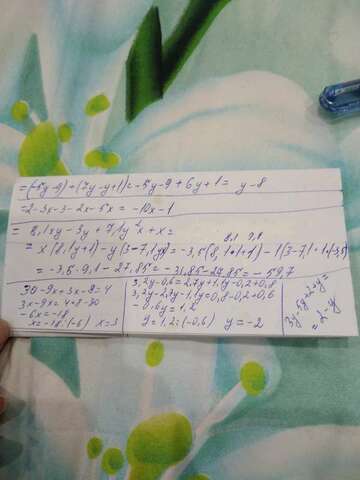 =(-5y-9)+(7y-y+1)=-5y-9+6y+1= y-8
=2-3x-3-2x-5x=-10x-1
= 8,1xy-3y+7,1y²x+x=
= x(8,1y+1)-y(3-7,1yx)=-3,5(8,1+1)-1(3-7,1
=-3,5·9,1-27,85=-31,85-27,85=-59,7
30-9x+3x-8=4
3x-9x=4+8-30
-6x=-18
x=-18:(-6) x=3
3,2y-0,6=2,7y+1,1y-0,2+0,8
3,2y-2,7y-1,1y=0,8-0,2+0,6
-0,6y=1,2
y=1,2:(-0,6) y=-2
3y-5y+2+y=
=2-y